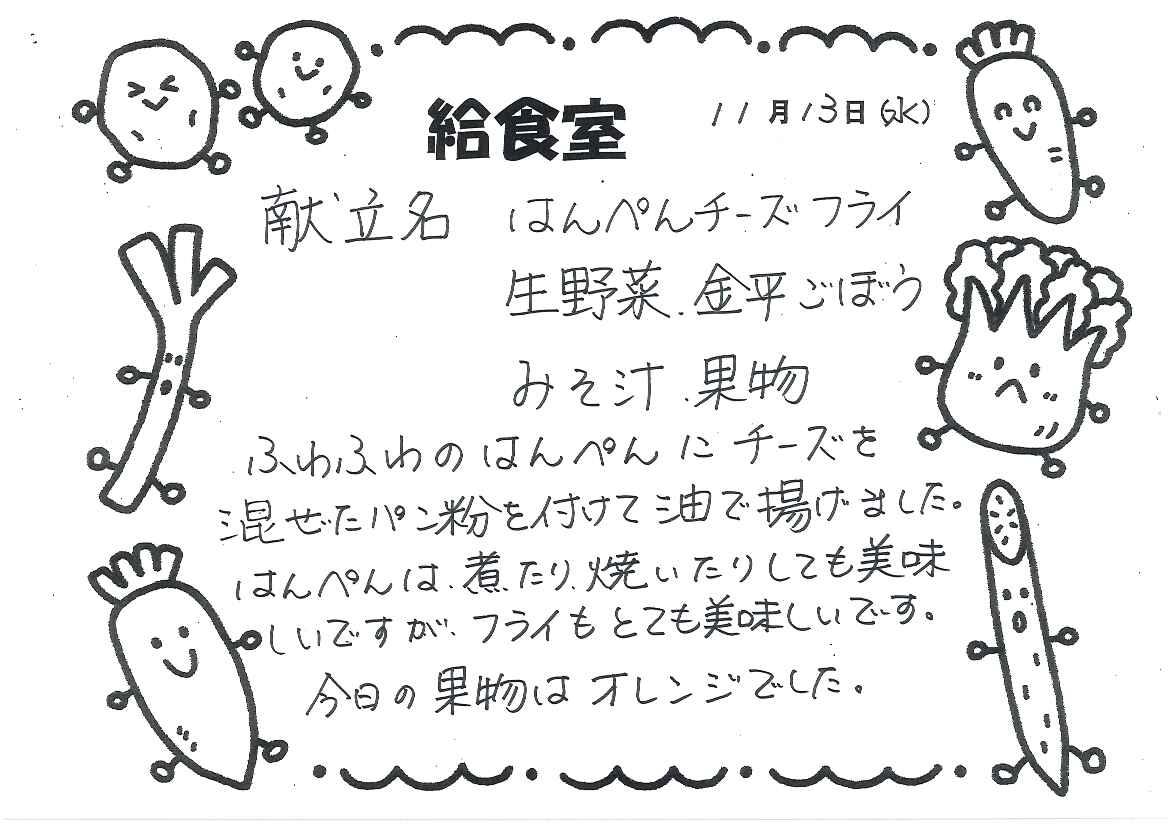 給食室 11月13日(水)
献立名 はんぺんチーズフライ
生野菜.金平ごぼう
みそ汁.果物
ふわふわのはんぺんにチーズを
混ぜたパン粉を付けて油で揚げました。
はんぺんは、煮たり、焼いたりしても美味
しいですが、フライもとても美味しいです。
今日の果物はオレンジでした。